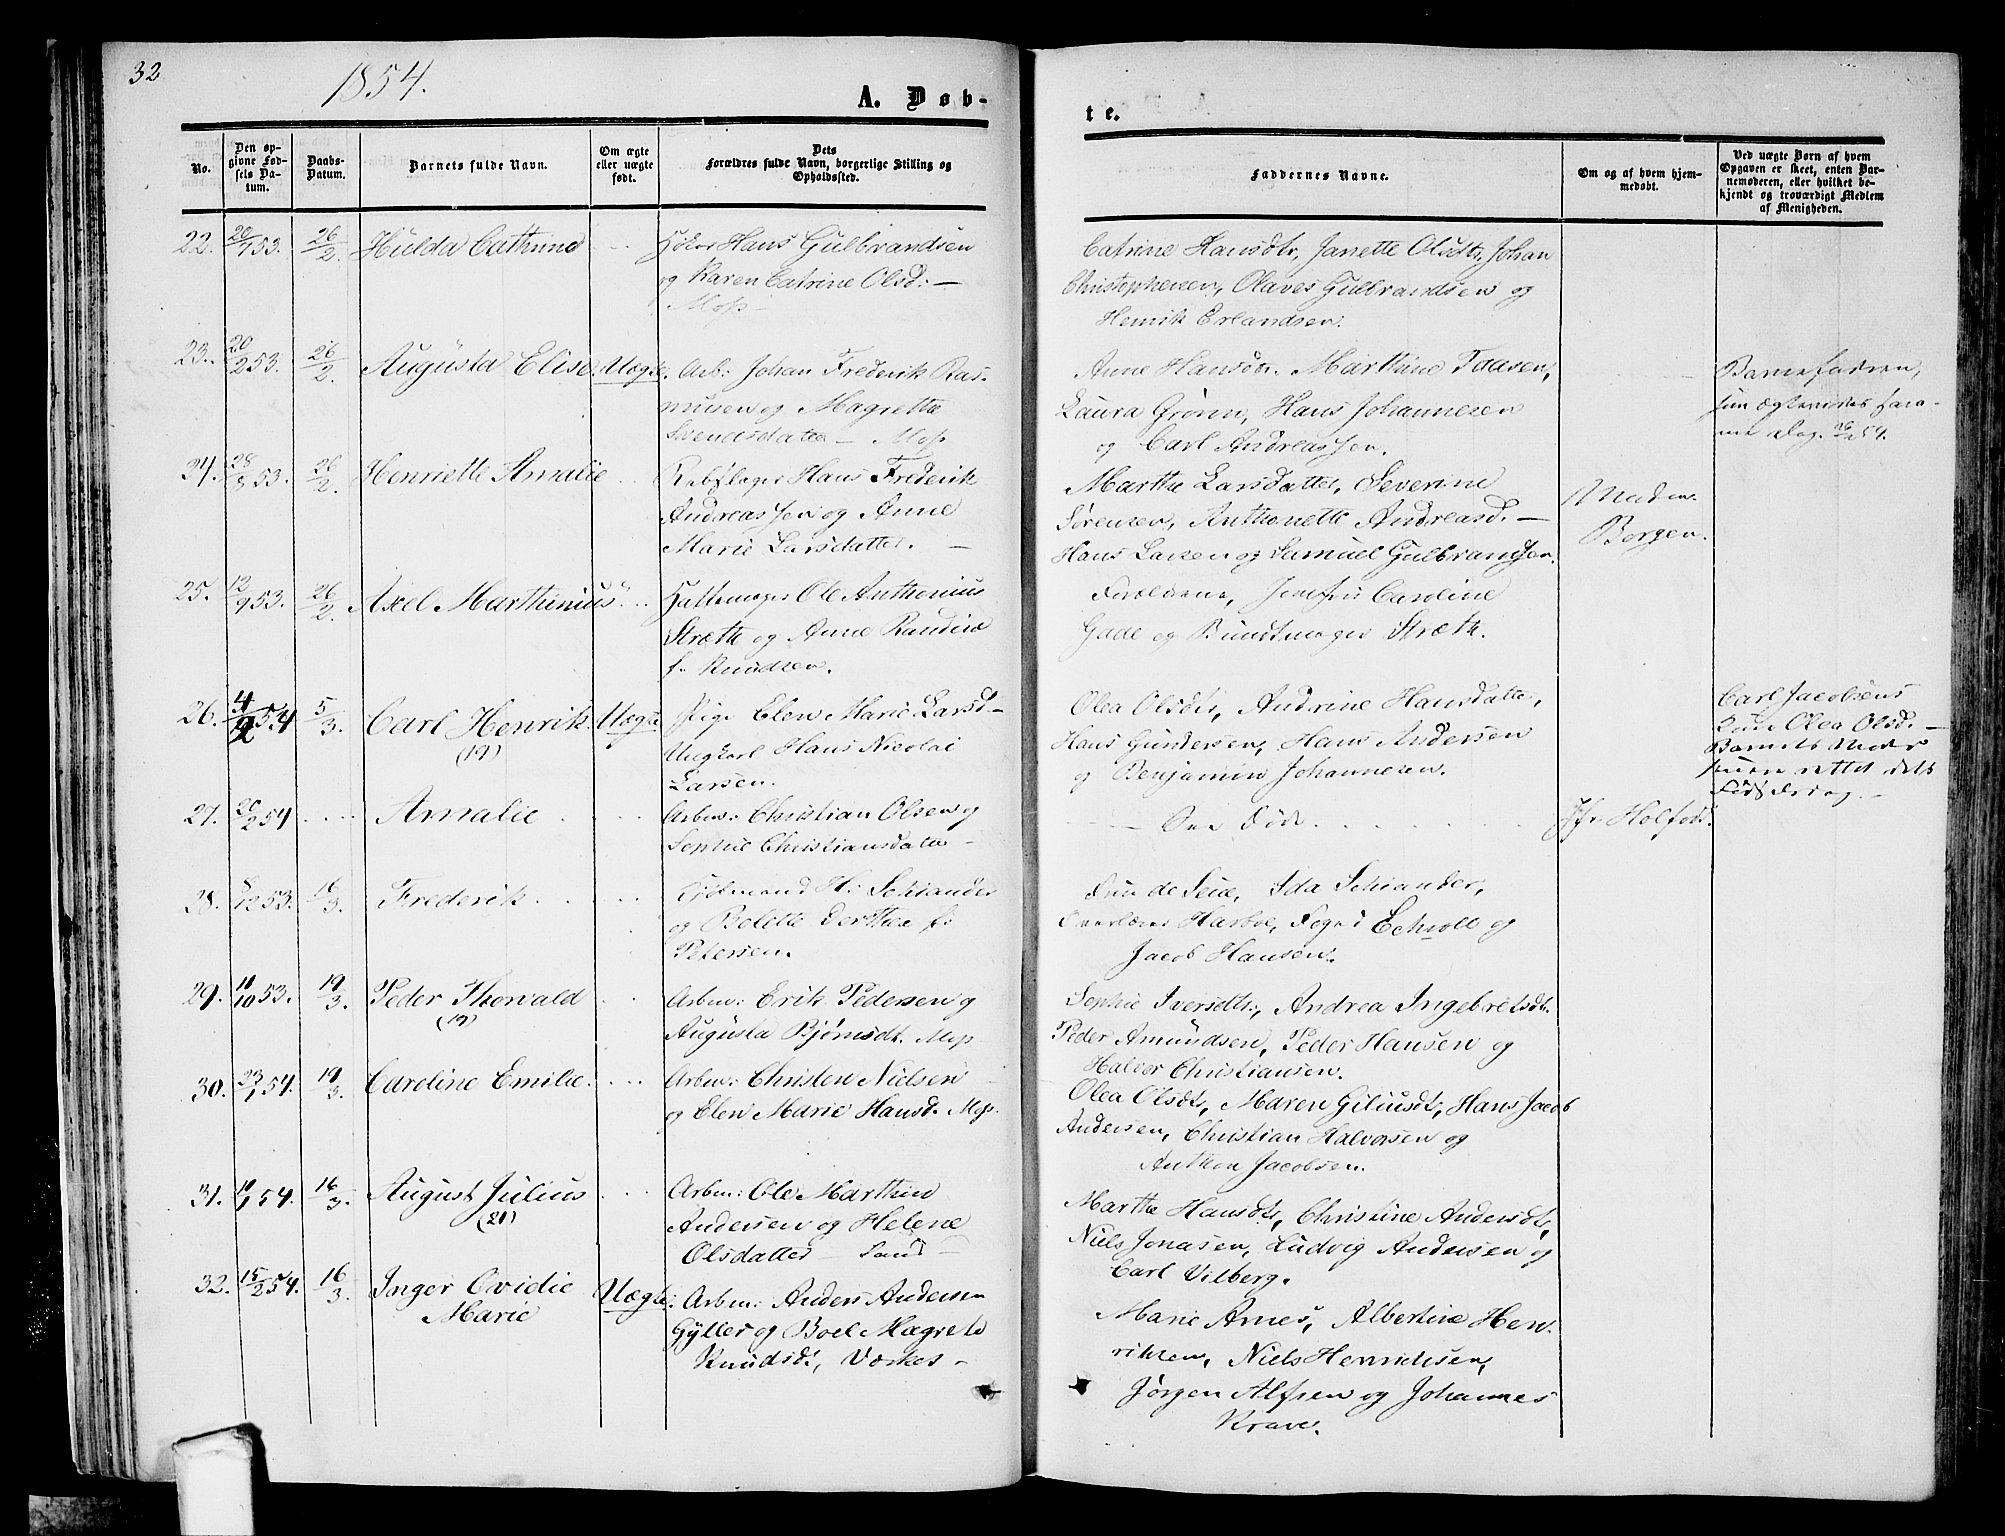 32
1854.
A. Døb-
No.
Den op-
givne Fød-
sels Da-
tum.
Daabs-
Datum.
Barnets fulde Navn.
Om ægte
eller uægte
født.
Dets
Forældres fulde Navn, borgerlige Stilling og
Opholdssted.
22. 20/7 53. 26/2 Hulda Cathrine Hans Gulbrandsen
og Karen Catrine Olsd: —
Moss
23. 20/2 53. 26/2. Augusta Elise Uægte. Arb: Johan Frederik Ras-
musen og Magrette
Svendsdatter — Moss
24. 28/8 53. 26/2. Henriette Amalie Rebslager Hans Frederik
Andreassen og Anne
Marie Larsdatter. —
25. 12/9 53. 26/2. Axel Marthinius Hattemager Ole Anthonius
Stræthe og Anne Randine
f. Knudsen.
26. 4/2 54 5/3. Carl Henrik. Uægte Pige Elen Marie Larsd —
(19) Ungkarl Hans Nicolai
Larsen.
27. 20/2 54 Amalie Arbm: Christian Olsen og
Sophie Christiansdatter —
28. 8/12 53. 16/3. Frederik Kjøbmand H: Schiander
og Bolette Dorthea f:
Petersen.
29. 10/10 53. 19/3. Peder Thorvald Arbm: Erik Pedersen og
(19) Augusta Bjørnsdt. Moss
30. 23/1 54. 19/3. Caroline Emilie. Arbm: Christen Nielsen
og Elen Marie Hansd. Moss.
31. 10/1 54. 16/3. August Julius Arbm: Ole Marthin
(21) Andersen og Helene
Olsdatter — Sand —
32. 15/2 54. 16/3. Inger Ovidie Uægte. Arbm: Anders Andersen
Marie Gyller og Boel Magrete
Knudsd:, Værket —
te.
Faddernes Navne.
Om og af hvem hjem-
medøbt.
Ved uægte Børn af hvem
Opgaven er skeet, enten Bar-
nemoderen, eller hvilket be-
kjendt og troværdigt Medlem
af Menigheden.
Catrine Hansdtr, Janette Olsdtr, Johan
Christophersen, Olaves Gulbrandsen og
Henrik Erlandsen.
Anne Hansdtr. Marthine Faasen, Barnefaderen,
Laura Grønn, Hans Johannesen
og Carl Andreassen. Dag. 26/2 54.
Marthe Larsdatter, Severine
Sørensen, Anthonette Andreasd. — Madm.
Hans Larsen og Samuel Gulbrandsen. Borgen.
Forældrene, Jomfru Caroline
Gade og Bundtmager Stræth.
Olea Olsdt, Andrine Hansdatter, Carl Jacobsens
Hans Gundersen, Hans Andersen Kone Olea Olsd. —
og Benjamin Johannesen. Barnets Moder
rettet dets
Fødselsdag. —
Død Jfr Holfeldt.
Fru de Seue, Ida Schiander,
Harboe, Foged Schvolle og
Jacob Hansen.
Sophie Iversdtr, Andrea Ingebretsdt.
Peder Amundsen, Peder Hansen og
Halvor Christiansen.
Olea Olsdt, Maren Giliusdt, Hans Jacob
Andersen, Christian Halvorsen og
Anthon Jacobsen.
Marthe Hansdt, Christine Andersdt,
Niels Jonasen, Ludvig Andersen og
Carl Vilberg.
Marie Arnes, Albertine Hen-
riksen, Niels Henriksen,
Jørgen Alfsen og Johannes
Krave.